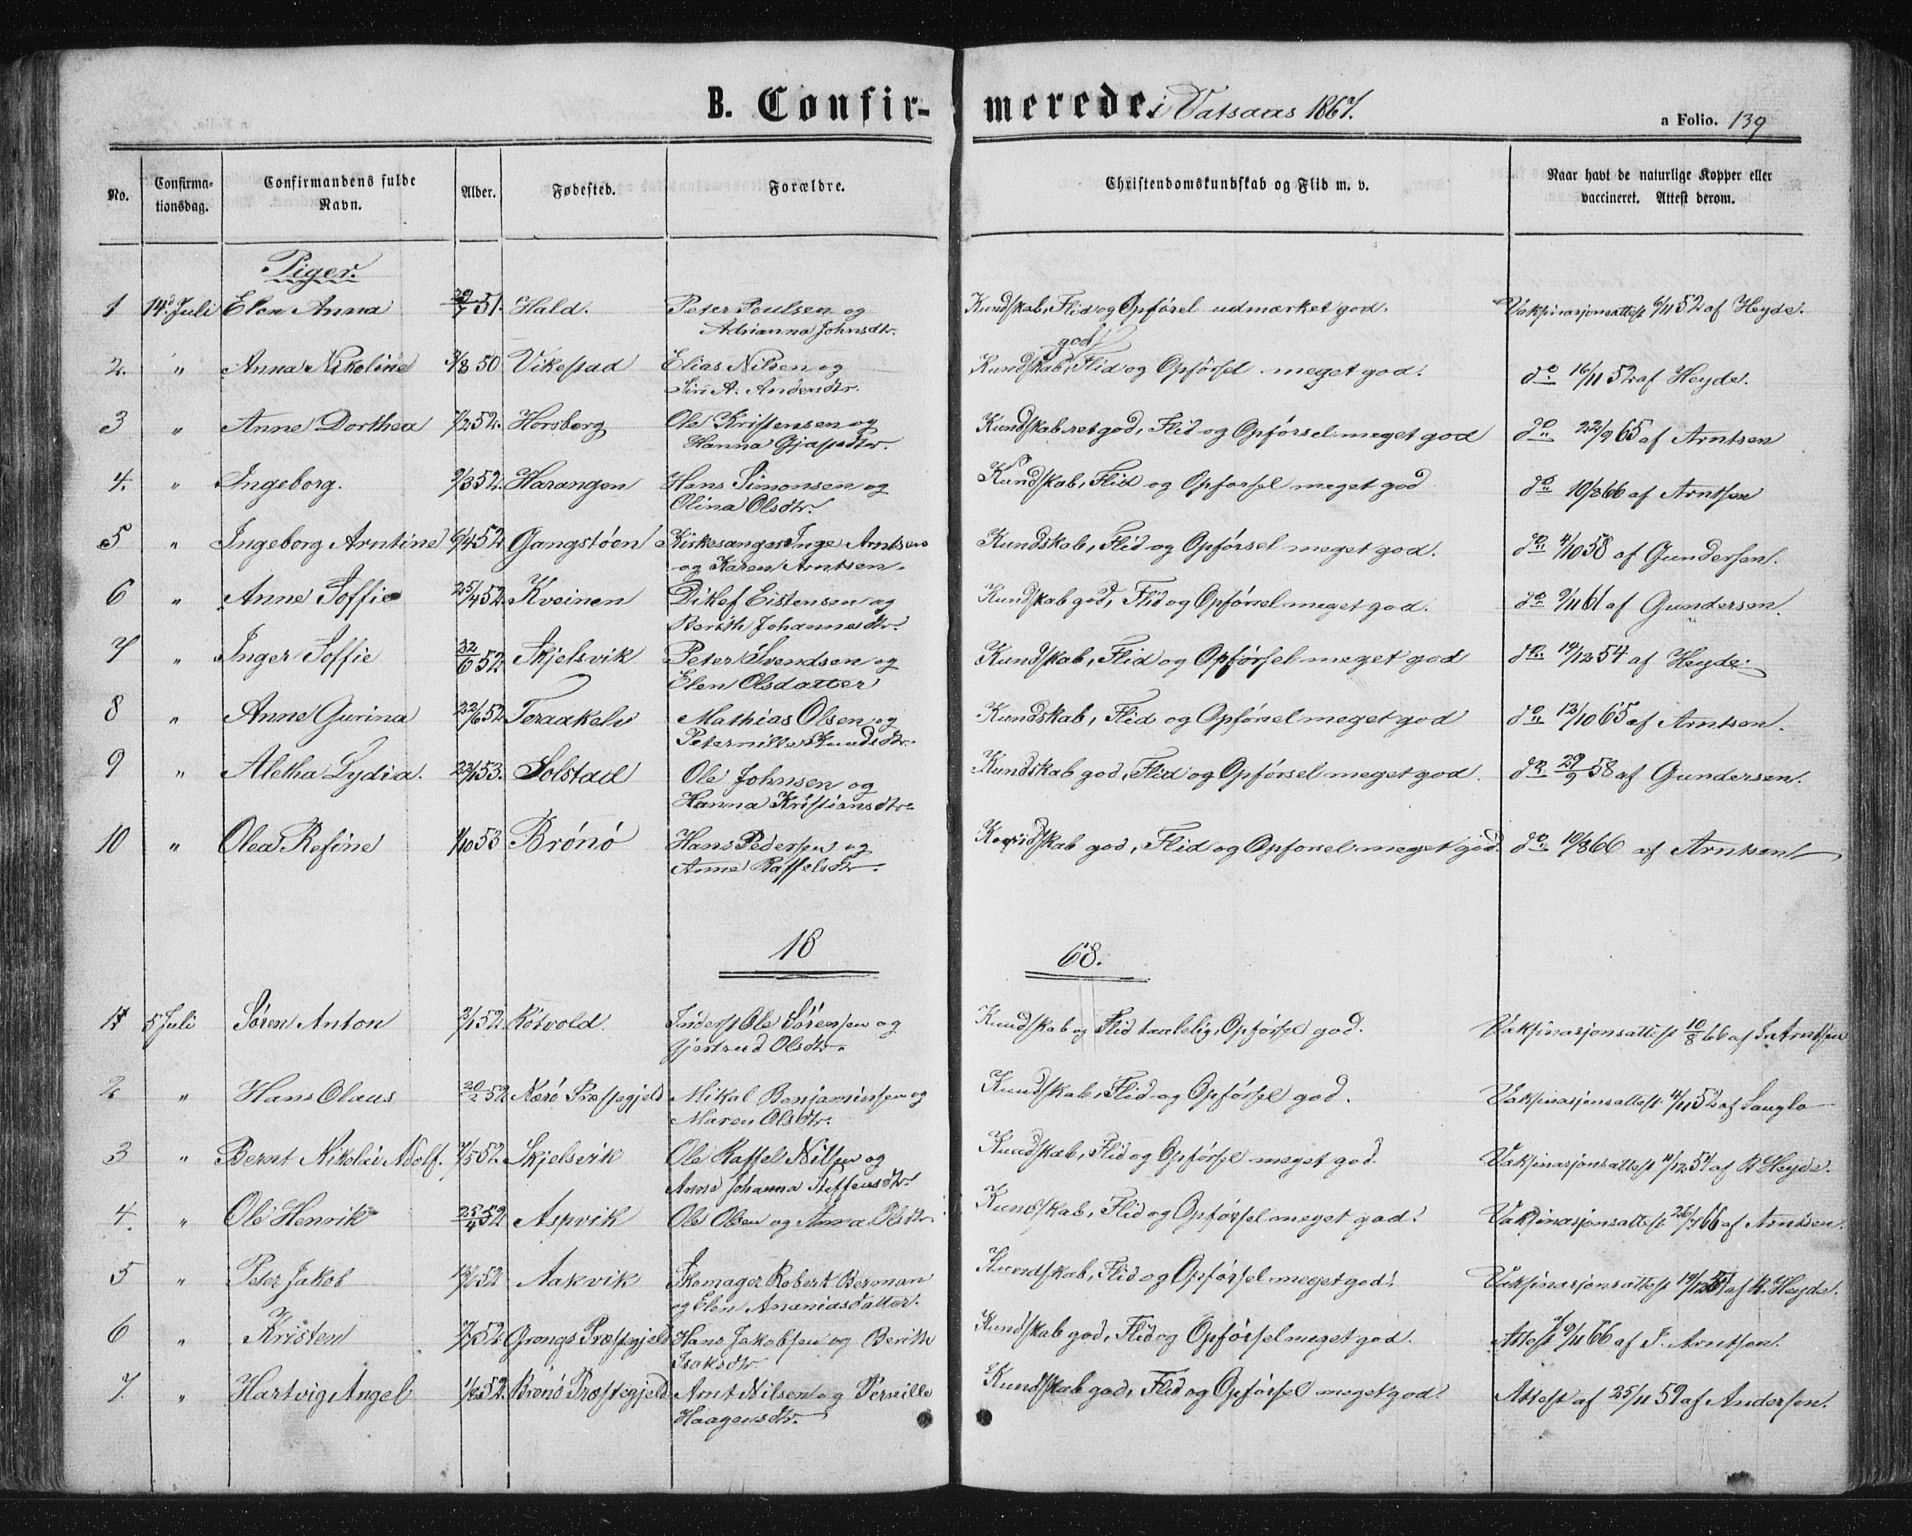 B. Confirmerede i Vatsaas 1867. a Folio. 139
No. Confirmationsdag. Confirmandens fulde Navn. Alder. Fødested. Forældre. Christendomskundskab og Flid m. v. Naar havt de naturlige Kopper eller vaccineret. Attest derom.
Piger.
1 14d Juli Elen Anna 29/7 51. Hald. Peter Poulsen og Kundskab, Flid og Opførsel udmærket god. Vaksinasjonsattest 6/11 52 af Heyde.
Adrianna Johnsdtr.
god
2. " Anna Nikoline 3/8 50 Vikestad Elias Nilsen og Kundskab, Flid og Opførsel meget god. do 16/11 52 af Heyde.
Siri A. Andersdtr.
3 " Anne Dorthea 7/2 52. Horsberg Ole Kristensen og Kundskab ret god, Flid og Opførsel meget god do 22/9 65 af Arntsen
Hanna
4. " Ingeborg. 9/3 52. Harangen Hans Simonsen og Kundskab, Flid og Opførsel meget god do 10/8 66 af Arntsen
Olina Olsdtr.
5 " Ingeborg Arntine 6/4 52 Gangstøen Kirkesanger Inge Arntsen Kundskab, Flid og Opførsel meget god. do 4/10 58 af Gundersen.
og Karen Arntsen.
6 " Anne Soffie 25/4 52. Kveinen Ditlef Eistensen og Kundskab god, Flid og Opførsel meget god. do 9/11 61 af Gundersen.
Berith Johannesdtr.
7 " Inger Soffie 52. Skjelsvik Peter Svendsen og Kundskab, Flid og Opførsel meget god do 14/12 54 af Heyde.
Elen Olsdatter
8 " Anne Gurina 22/6 52 Teraakelv Mathias Olsen og Kundskab, Flid og Opførsel meget god do 13/10 65 af Arntsen.
Peternille Knudsdtr.
9 " Aletha Lydia. 23/1 53. Solstad Ole Johnsen og Kundskab god, Flid og Opførsel meget god. do 29/9 58 af Gundersen.
Hanna Kristiansdtr.
10 " Olea Refine 1/10 53 Brønø Hans Pedersen og Kundskab god, Flid og Opførsel meget god. do 10/8 66 af Arntsen
Anne Raffelsdtr.
18 68.
1 5 Juli Søren Anton 2/1 52. Kötvold. Inderst Ole Sørensen og Kundskab og Flid taalelig, Opførsel god. Vaksinasjonsattest 10/8 66 af I. Arntsen
Gjertrud Olsdtr.
2 " Hans Olaus 20/2 52 Nærø Præstegjeld Mikal Benjaminsen og Kundskab, Flid og Opførsel god. Vaksinasjonsattest 4/11 52 af Sauglo
Maren Olsdtr.
3 " Bernt Nikolai Adolf. 7/5 52. Skjelsvik Ole Raffel Nilsen og Kundskab, Flid og Opførsel meget god. Vaksinasjonsattest 14/12 54 af B. Heyde.
Anne Johanna Steffensdtr
4. " Ole Henrik 25/4 52 Aspvik Ole Olsen og Anna Olsdtr. Kundskab, Flid og Opførsel meget god. Vaksinasjonsattest 26/7 66 af Arntsen.
5 " Peter Jakob 52 Aakvik Skomager Robert Beronan Kundskab, Flid og Opførsel meget god. Vaksinasjonsattest 14/12 54 af B. Heyde.
og Elen Ananiasdatter.
6 " Kristen 52. Grongs Præstegjeld Hans Jakobsen og Berith Kundskab god, Flid og Opførsel meget god. Attest 10/11 66 af I. Arntsen.
Isaksdtr.
7. " Hartvig Angel 52. Brønø Præstegjeld Arnt Nilsen og Pernille Kundskab god, Flid og Opførsel meget god. Attest af 25/11 59 af Andersen.
Haagensdtr.